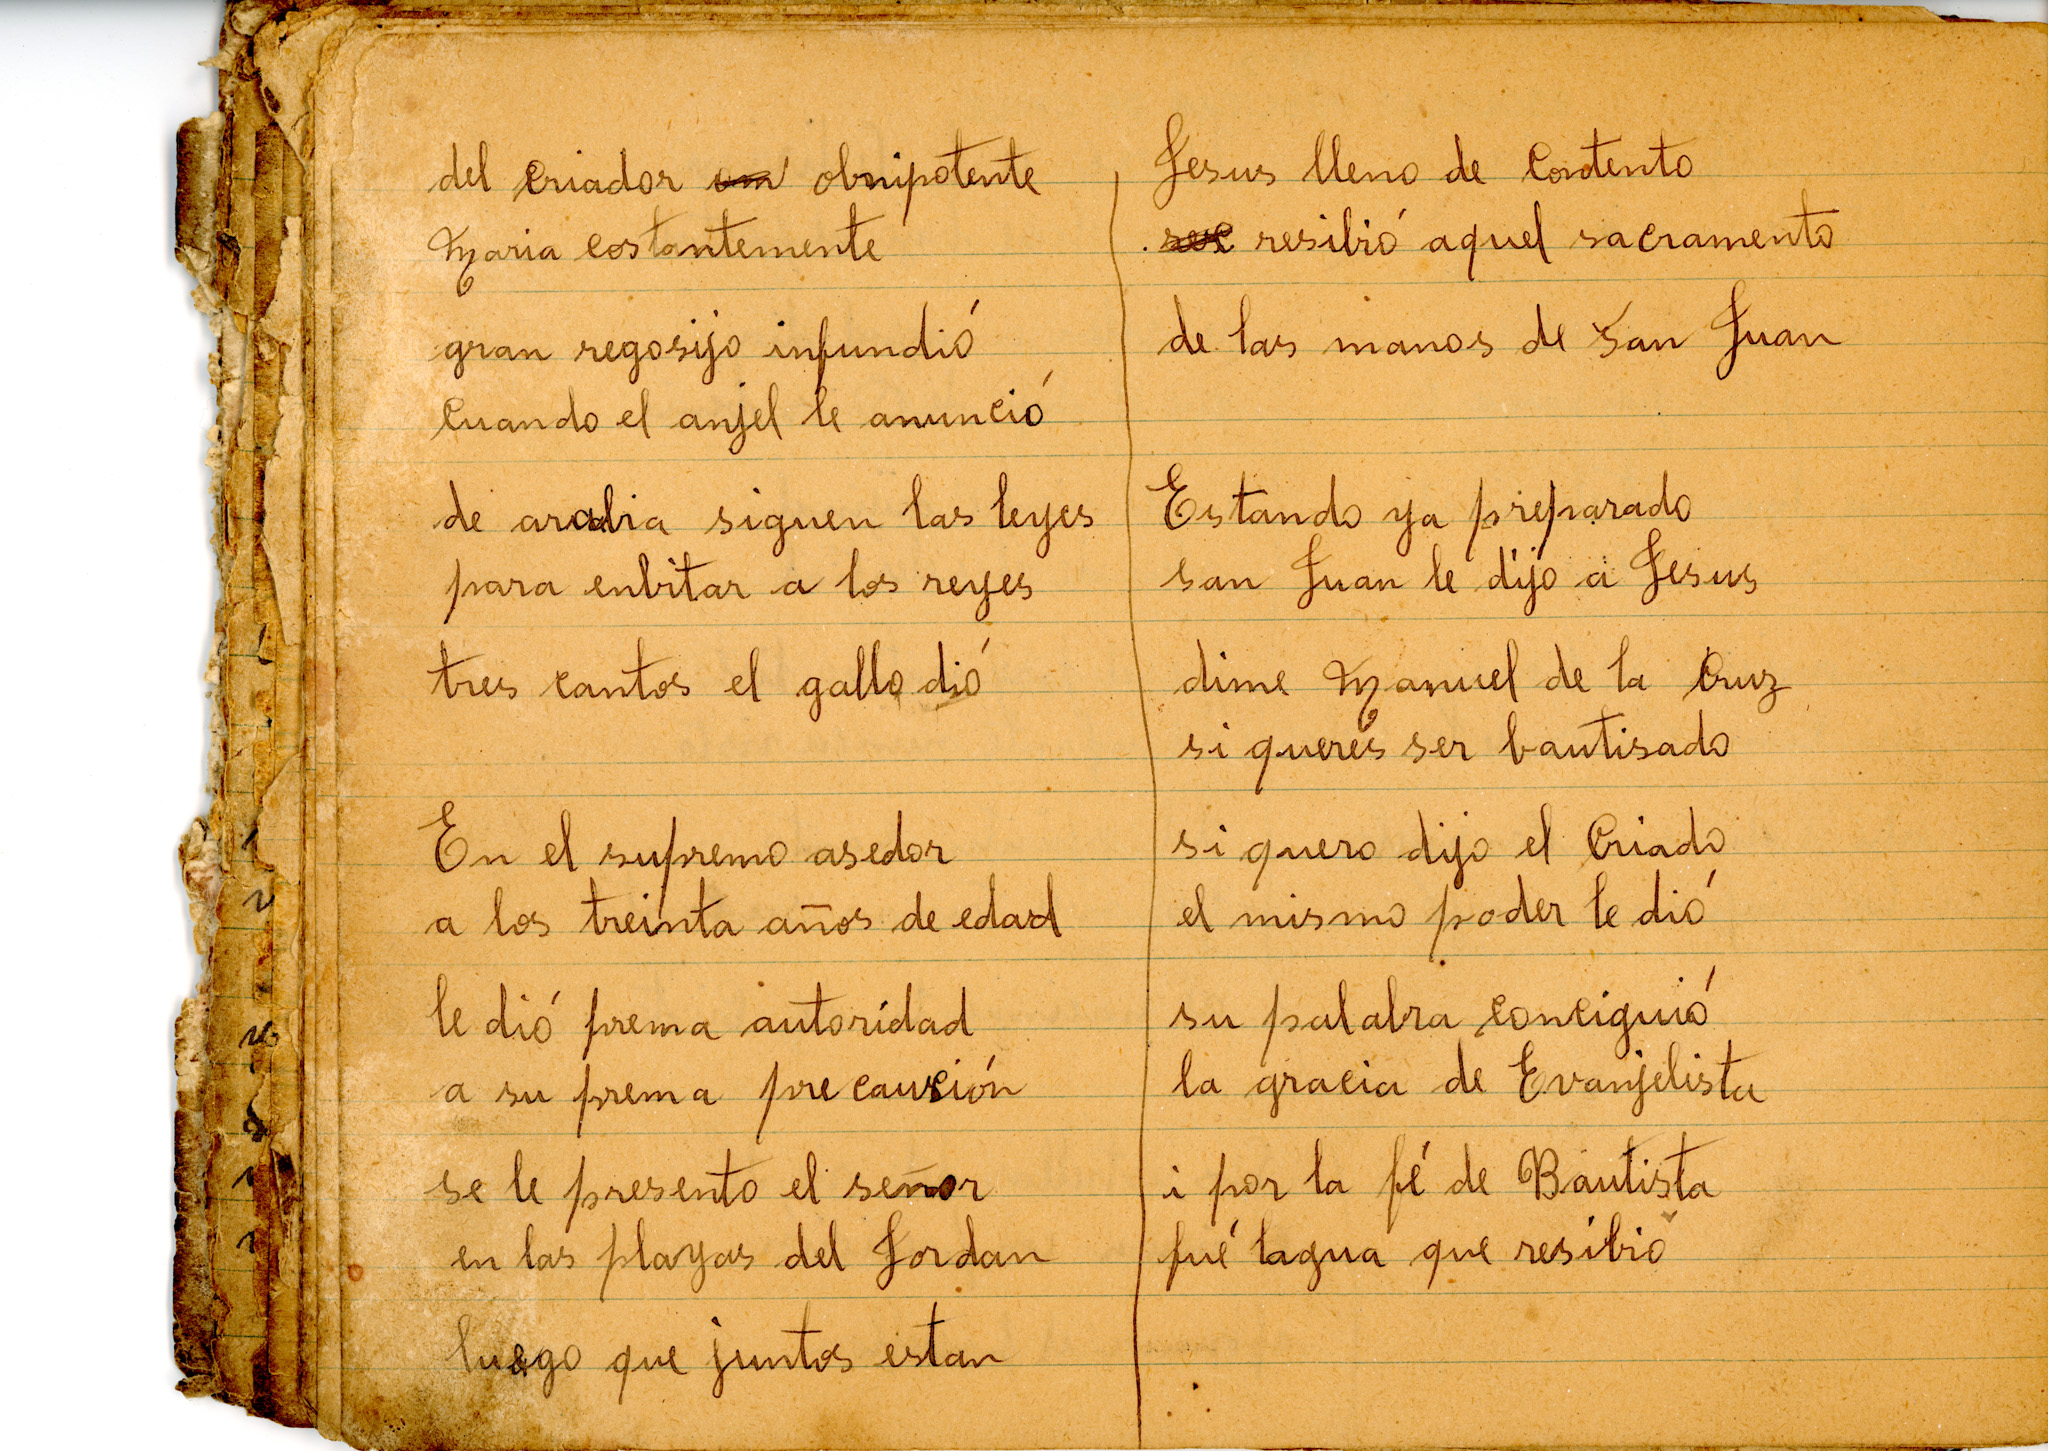 del criador om obnipotente
Maria costantemente
gran regosijo infundió
cuando el anjel le anunció
de arabia siguen las leyes
para enbitar a los reyes
tres cantos el gallo dió
En el supremo asedor
a los treinta años de edad
le dió prema autoridad
a su prema precaución
se le presento el señor
en las playas del Jordan
luego que juntos estan
Jesus lleno de Contento
resibió aquel sacramento
de las manos de San Juan
Estando ya preparado
san Juan le dijo a Jesus
dime Manuel de la Cruz
si querés ser bautisado
si quero dijo el Criado
el mismo poder le dió
su palabra conciguió
la gracia de Evanjelista
i por la fé de Bautista
fué lagua que resibió